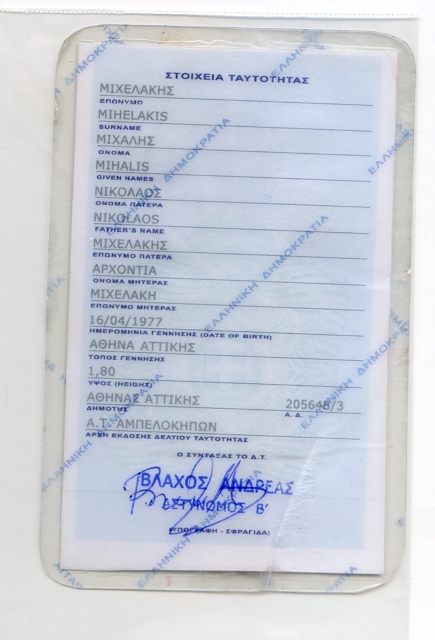 ΣΤΟΙΧΕΙΑ ΤΑΥΤΟΤΗΤΑΣ
ΜΙΧΕΛΑΚΗΣ
ΕΠΩΝΥΜΟ
MIHELAKIS
SURNAME
ΜΙΧΑΛΗΣ
ΟΝΟΜΑ
MIHALIS
GIVEN NAMES
ΝΙΚΟΛΑΟΣ
ΟΝΟΜΑ ΠΑΤΕΡΑ
NIKOLAOS
FATHER'S NAME
ΜΙΧΕΛΑΚΗΣ
ΕΠΩΝΥΜΟ ΠΑΤΕΡΑ
ΑΡΧΟΝΤΙΑ
ΟΝΟΜΑ ΜΗΤΕΡΑΣ
ΜΙΧΕΛΑΚΗ
ΕΠΩΝΥΜΟ ΜΗΤΕΡΑΣ
16/04/1977
ΗΜΕΡΟΜΗΝΙΑ ΓΕΝΝΗΣΗΣ (DATE OF BIRTH)
ΑΘΗΝΑ ΑΤΤΙΚΗΣ
ΤΟΠΟΣ ΓΕΝΝΗΣΗΣ
1,80
ΥΨΟΣ (HEIGHT)
ΑΘΗΝΑΣ ΑΤΤΙΚΗΣ 205648/3
ΔΗΜΟΤΗΣ Α. Δ.
Α.Τ. ΑΜΠΕΛΟΚΗΠΩΝ
ΑΡΧΗ ΕΚΔΟΣΗΣ ΔΕΛΤΙΟΥ ΤΑΥΤΟΤΗΤΑΣ
Ο ΣΥΝΤΑΞΑΣ ΤΟ Δ.Τ.
ΒΛΑΧΟΣ ΑΝΔΡΕΑΣ
ΑΣΤΥΝΟΜΟΣ Β'
(ΥΠΟΓΡΑΦΗ - ΣΦΡΑΓΙΔΑ)
ΕΛΛΗΝΙΚΗ ΔΗΜΟΚΡΑΤΙΑ